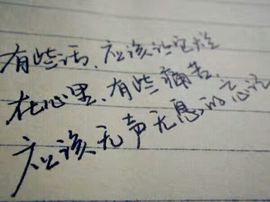 有些话,应该让它烂
在心里,有些痛苦,
应该无声无息的忘记